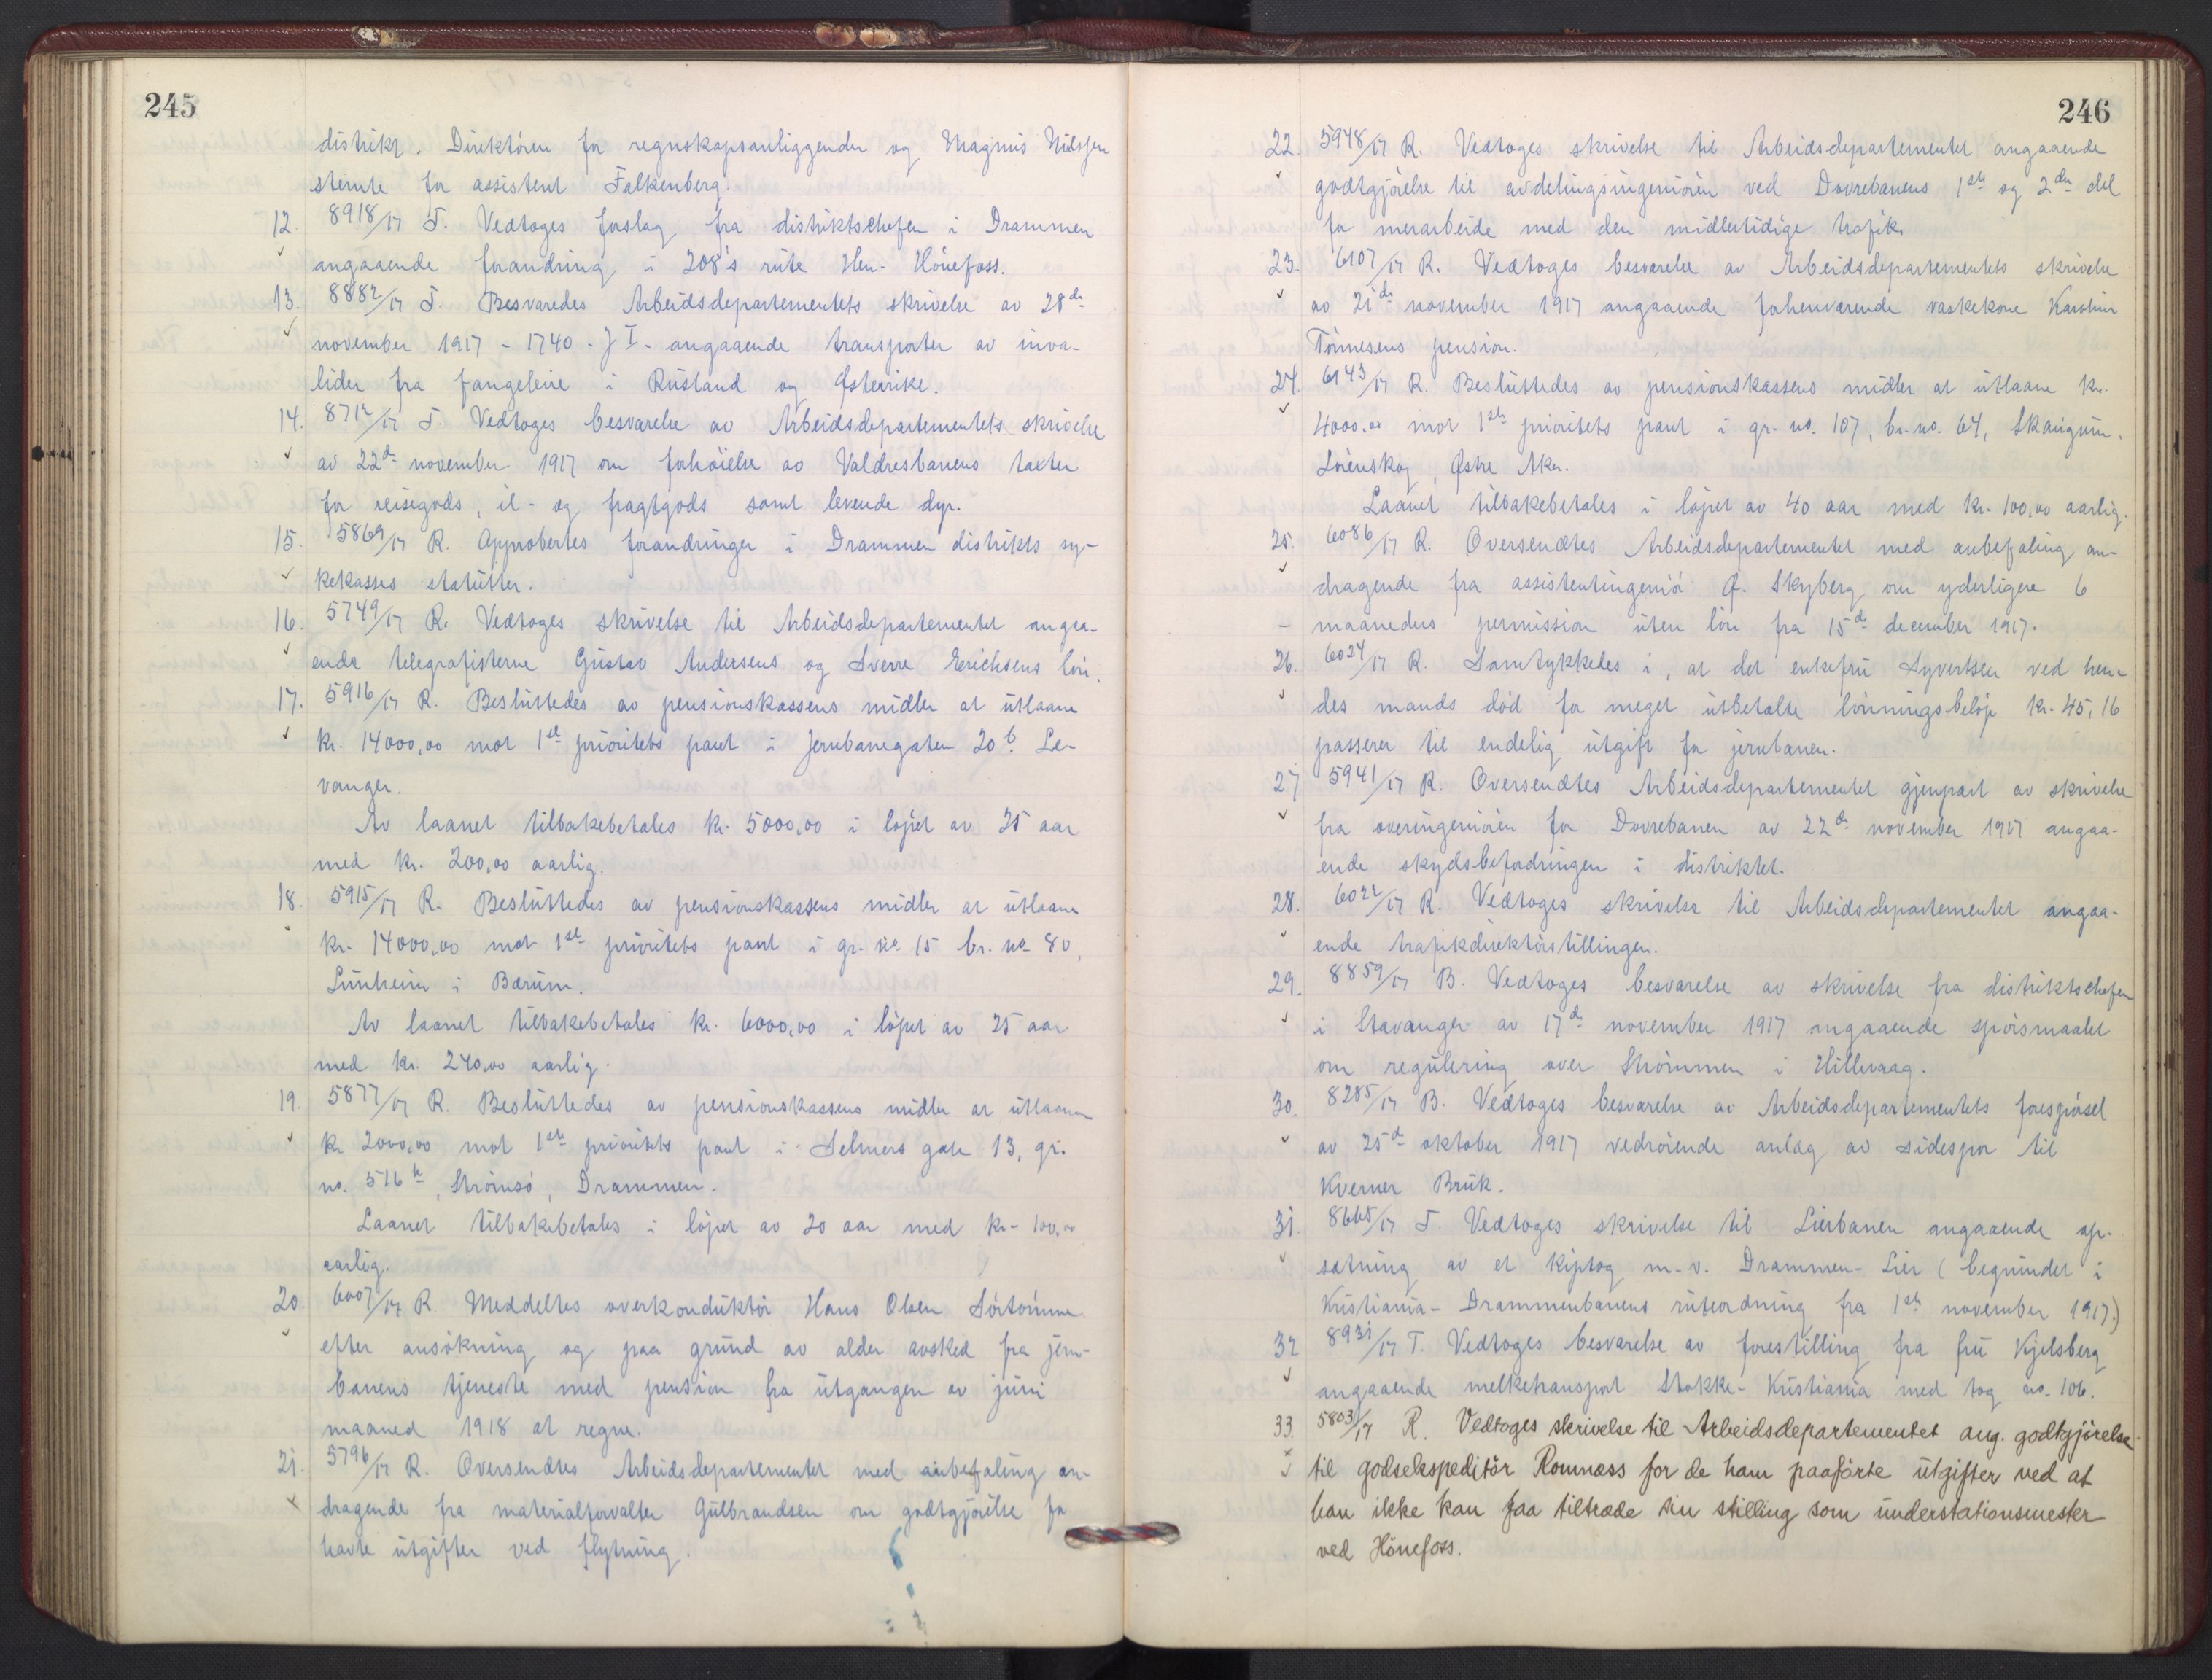 245
distrikt. Direktören for regnskapsanliggender og Magnus Nilssen
stemte for assistent Falkenberg.
12. 8918/17 T. Vedtoges forslag fra distriktschefen i Drammen
angaaende forandring i 208's rute Hen - Hönefoss.
13. 8882/17 T. Besvaredes Arbeidsdepartementets skrivelse av 28de
november 1917 - 1740 - J I - angaaende transporter av inva-
lider fra fangeleire i Rusland og Østerrike.
14. 8712/17 T. Vedtoges besvarelse av Arbeidsdepartementets skrivelse
av 22de november 1917 om forhöielse av Valdresbanens taxter
for reisegods, il- og fragtgods samt levende dyr.
15. 5869/17 R. Approbertes forandringer i Drammen distrikts sy-
kekasses statutter.
16. 5749/17 R. Vedtoges skrivelse til Arbeidsdepartementet angaa-
ende telegrafisterne Gustav Andersens og Sverre Erichsens lön.
17. 5916/17 R. Besluttedes av pensionskassens midler at utlaane
kr. 14000,00 mot 1ste prioritets pant i Jernbanegaten 20 b. Le-
vanger.
Av laanet tilbakebetales kr. 5000,00 i löpet av 25 aar
med kr. 200,00 aarlig.
18. 5915/17 R. Besluttedes av pensionskassens midler at utlaane
kr. 14000,00 mot 1ste prioritets pant i gr. no. 15 br. no. 80,
Lunheim i Bærum.
Av laanet tilbakebetales kr. 6000,00 i löpet av 25 aar
med kr. 240,00 aarlig.
19. 5877/17 R. Besluttedes av pensionskassens midler at utlaane
kr 2000,00 mot 1ste prioritets pant i Selmers gate 13, gr.
no. 516 , Strömsö, Drammen.
Laanet tilbakebetales i löpet av 20 aar med kr. 100,00
aarlig.
20. 6007/17 R. Meddeltes overkonduktör Hans Olsen Sörtömme
efter ansökning og paa grund av alder avsked fra jern-
banens tjeneste med pension fra utgangen av juni
maaned 1918 at regne.
21. 5796/17 R. Oversendtes Arbeidsdepartementet med anbefaling an-
dragende fra materialforvalter Gulbrandsen om godtgjörelse for
havte utgifter ved flytning.
246
22. 5948/17 R. Vedtoges skrivelse til Arbeidsdepartementet angaaende
godtgjörelse til avdelingsingeniören ved Dovrebanens 1ste og 2den del
for merarbeide med den midlertidige trafik.
23. 6107/17 R. Vedtoges besvarelse av Arbeidsdepartementets skrivelse
av 21de november 1917 angaaende forhenværende vaskekone Karoline
Tönnesens pension.
24. 6143/17 R. Besluttedes av pensionskassens midler at utlaane kr.
4000,00 mot 1ste prioritets pant i gr. no. 107, br. no. 64, Skaugum.
Lörenskog, Østre Aker.
Laanet tilbakebetales i löpet av 40 aar med kr. 100,00 aarlig.
25. 6086/17 R. Oversendtes Arbeidsdepartementet med anbefaling an-
dragende fra assistentingeniör O. Skyberg om yderligere 6
maaneders permission uten lön fra 15de december 1917.
26. 6024/17 R. Samtykkedes i, at det enkefru Syvertsen ved hen-
des mands död for meget utbetalte lönningsbelöp kr. 45,16
passerer til endelig utgift for jernbanen.
27 5941/17 R. Oversendtes Arbeidsdepartementet gjenpart av skrivelse
fra overingeniören for Dovrebanen av 22de november 1917 angaa-
ende skydsbefordringen i distriktet.
28. 6022/17 R. Vedtoges skrivelse til Arbeidsdepartementet angaa-
ende trafikdirektörstillingen.
29. 8859/17 B. Vedtoges besvarelse av skrivelse fra distriktschefen
i Stavanger av 17de november 1917 angaaende spörsmaalet
om regulering over Strömmen i Hillevaag.
30. 8285/17 B. Vedtoges besvarelse av Arbeidsdepartementets forespörsel
av 25de oktober 1917 vedrörende anlæg av sidespor til
Kverner Bruk.
31. 8665/17 T. Vedtoges skrivelse til Lierbanen angaaende op-
sætning av et kiptog m. v. Drammen - Lier (begrundet i
Kristiania - Drammenbanens ruteordning fra 1ste november 1917.)
32 8931/17 T. Vedtoges besvarelse av forestilling fra fru Kjelsberg
angaaende melketransport Stokke - Kristiania med tog no. 106.
33. 5803/17 R. Vedtoges skrivelse til Arbeidsdepartementet ang. godtgjörelse
til godsekspeditör Romnæss for de ham paaförte utgifter ved at
han ikke kan faa tiltræde sin stilling som understationsmester
ved Hönefoss.